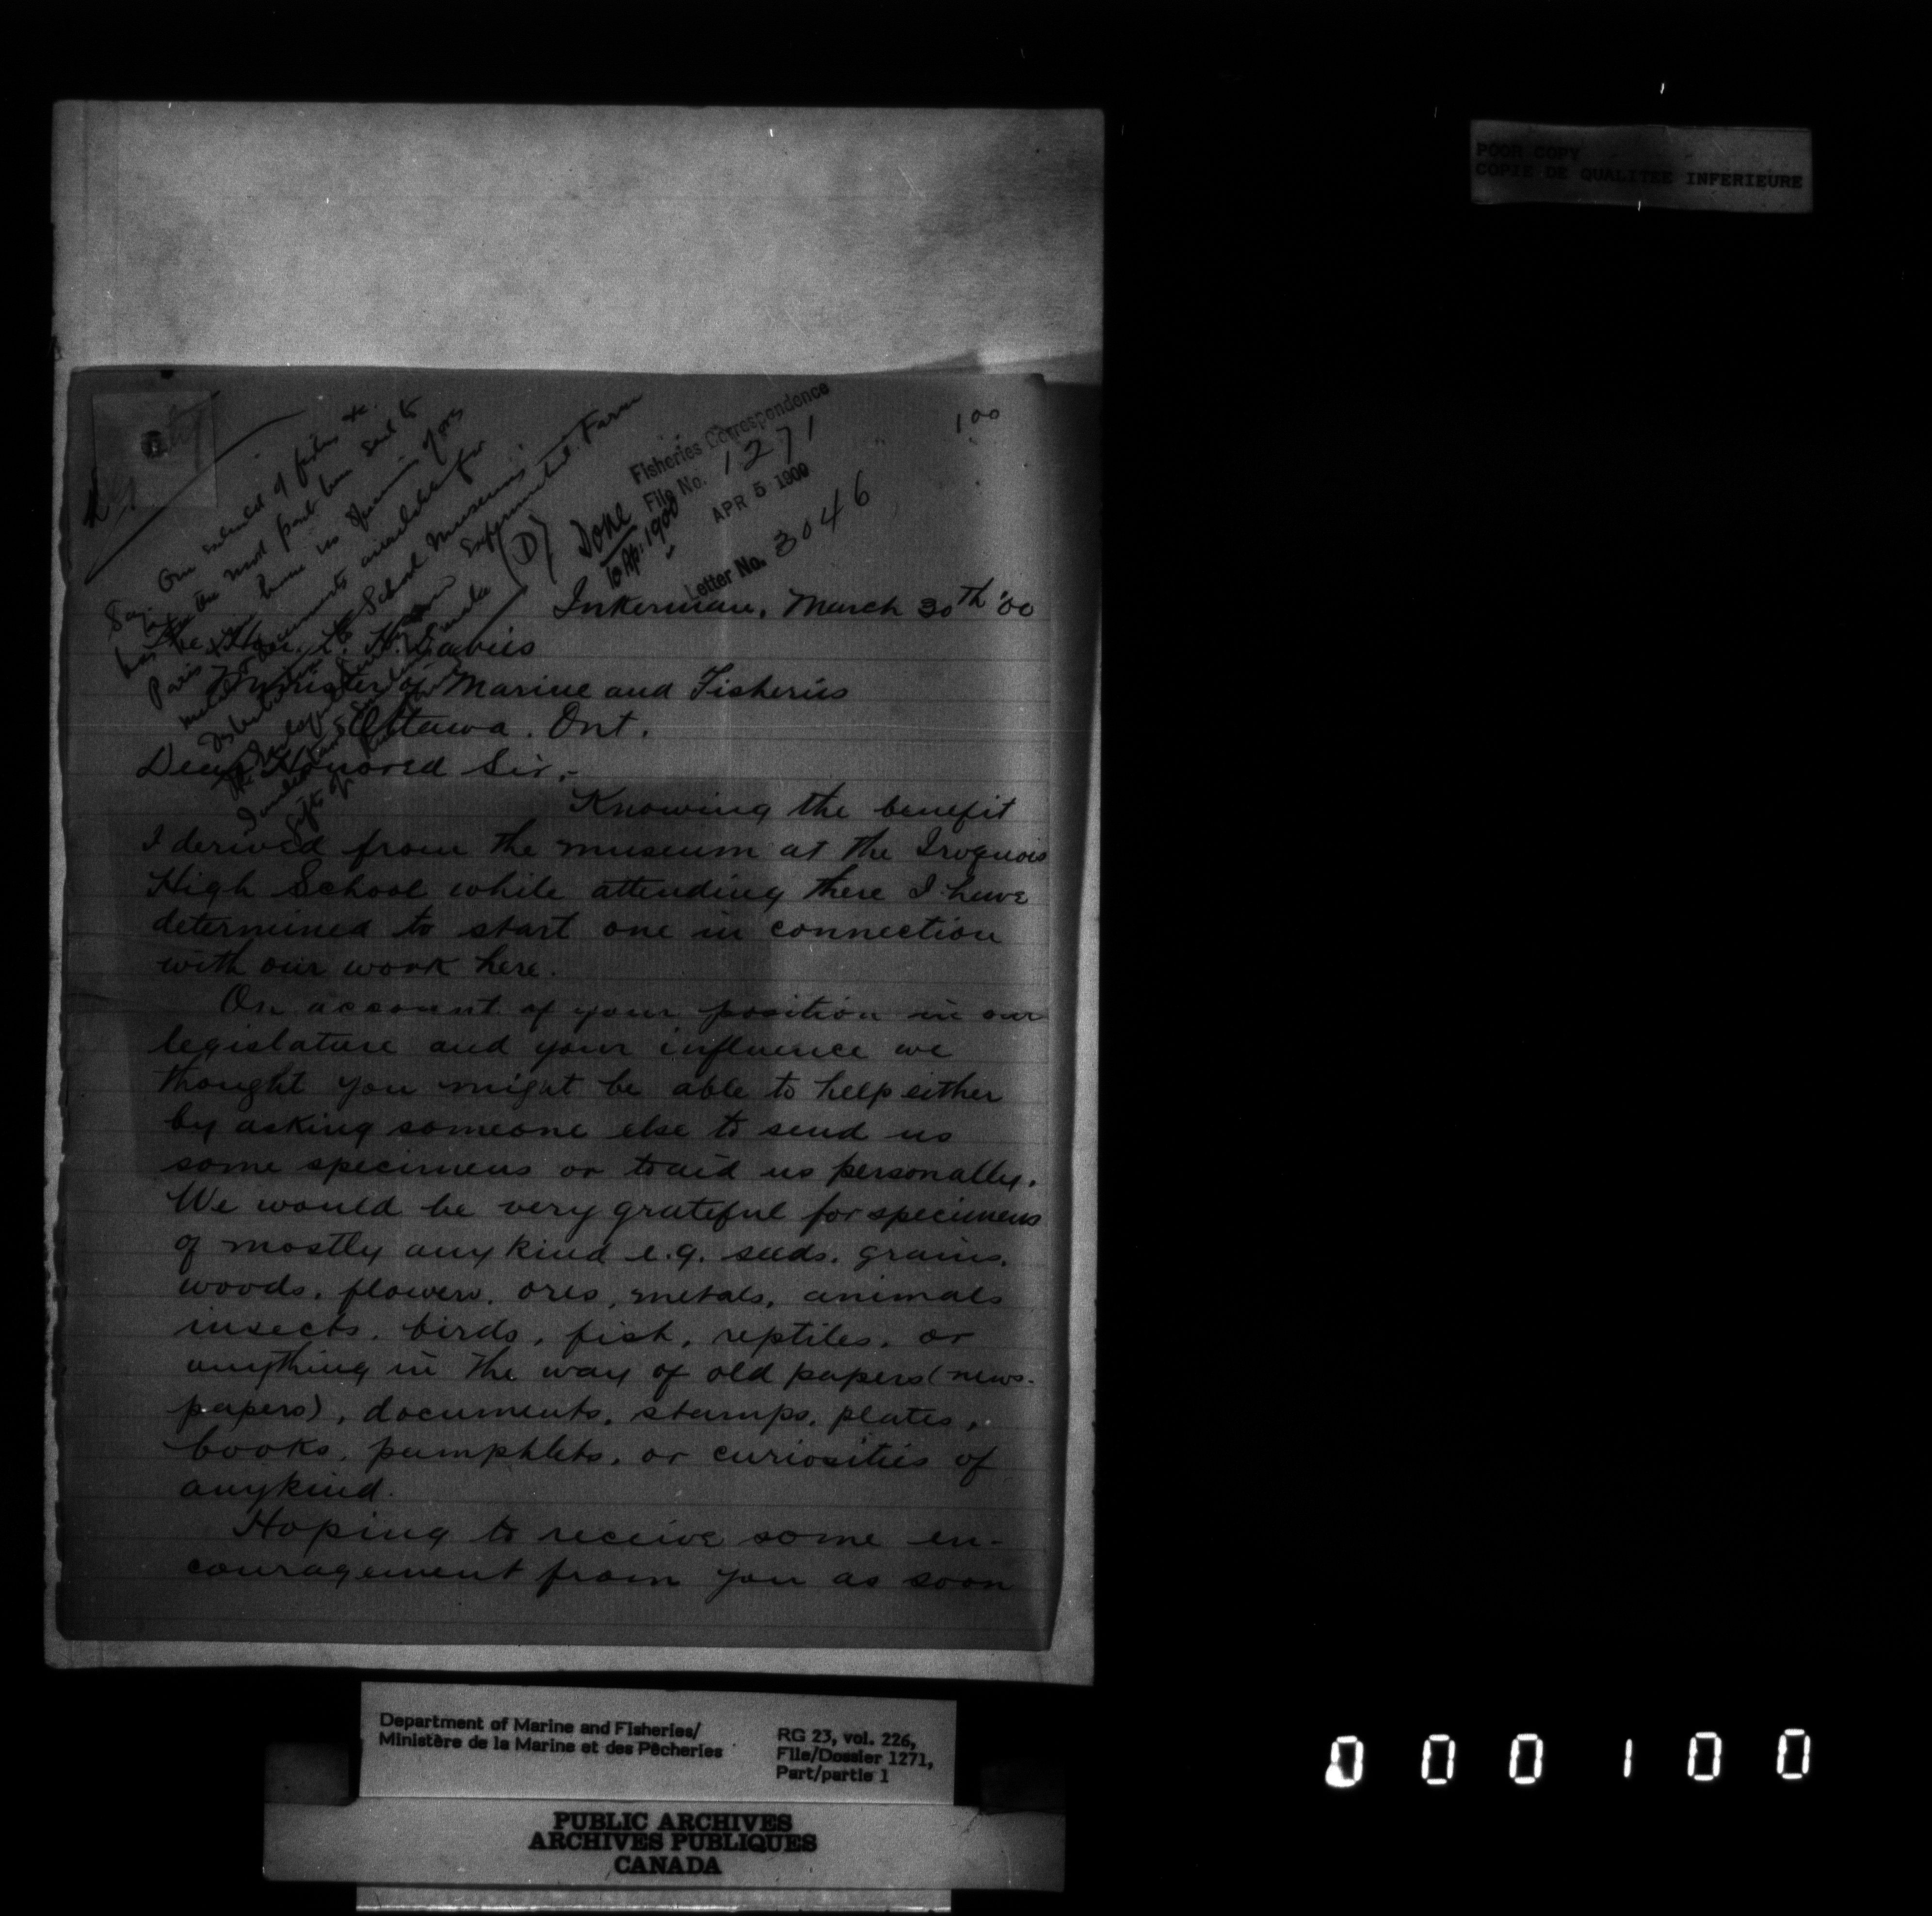 POOR COPY
COPIE DE QUALITEE INFERIEURE
100
Fisheries Correspondence
File No. 1271
APR 5 1900
Letter No. 3046
Done
10 Ap: 1900
(D)
School Museums
Experimental Farm
Inkerman, March 30th '00
The Hon. L. H. Davies
Minister of Marine and Fisheries
Ottawa. Ont.
Dear Honored Sir,-
Knowing the benefit
I derived from the museum at the Iroquois
High School while attending there I have
determined to start one in connection
with our work here.
On account of your position in our
legislature and your influence we
thought you might be able to help either
by asking someone else to send us
some specimens or to aid us personally.
We would be very grateful for specimens
of mostly any kind e.g. seeds, grains,
woods, flowers, ores, metals, animals
insects, birds, fish, reptiles, or
anything in the way of old papers (news-
papers), documents, stamps, plates,
books, pamphlets, or curiosities of
anykind.
Hoping to receive some en-
couragement from you as soon
Department of Marine and Fisheries/
Ministère de la Marine et des Pêcheries
RG 23, vol. 226,
File/Dossier 1271,
Part/partie 1
PUBLIC ARCHIVES
ARCHIVES PUBLIQUES
CANADA
000100